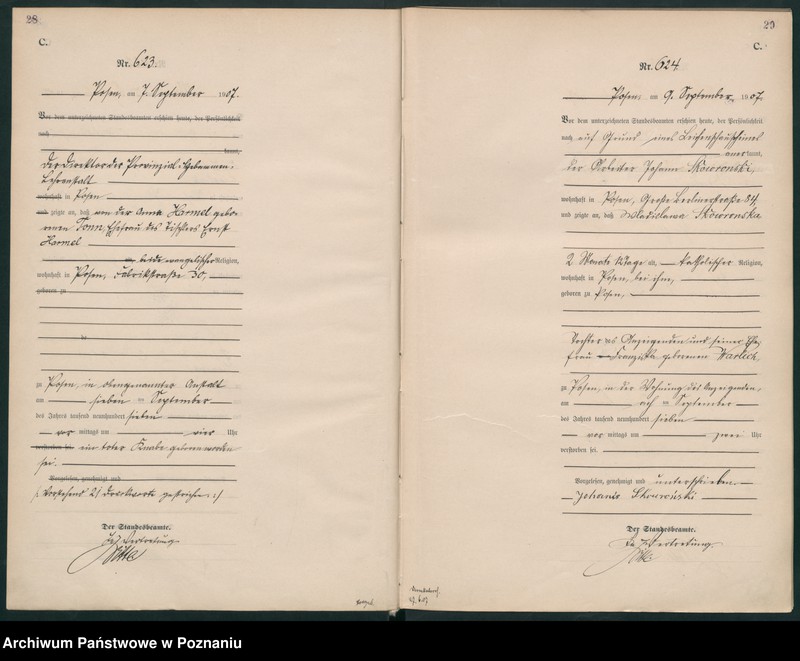 28
C.
Nr. 623.
Posen, am 7. September 1907.
Vor dem unterzeichneten Standesbeamten erschien heute, der Persönlichkeit
nach
kannt,
der Direktor der Provinzial-Hebammen-
Lehranstalt
wohnhaft in Posen
und zeigte an, daß von der Anna Harmel gebo-
renen Tonn, Ehefrau des Tischlers Ernst
Harmel
beide evangelischer Religion,
wohnhaft in Posen, Fabrikstraße 30,
geboren zu
zu Posen, in obengenannter Anstalt
am sieben ten September
des Jahres tausend neunhundert sieben
vor mittags um vier Uhr
verstorben sei. ein toter Knabe geboren worden
sei.
Vorgelesen, genehmigt und
Vorstehend 21 Druckworte gestrichen
Der Standesbeamte.
In Vertretung
29
C.
Nr. 624
Posen, am 9. September 1907.
Vor dem unterzeichneten Standesbeamten erschien heute, der Persönlichkeit
nach auf Grund eines Leichenschauscheines
anerkannt,
der Arbeiter Johann Skowronski,
wohnhaft in Posen, Große Berlinerstraße 84
und zeigte an, daß Wladislawa Skowronska
2 Monate 12 Tage alt, katholischer Religion,
wohnhaft in Posen, bei ihm,
geboren zu Posen,
Tochter des Anzeigenden und seiner Ehe-
frau Franziska geborenen Warlich,
zu Posen, in der Wohnung des Anzeigenden,
am acht ten September
des Jahres tausend neunhundert sieben
vor mittags um zwei Uhr
verstorben sei.
Vorgelesen, genehmigt und unterschrieben.
Johann Skowroński
Der Standesbeamte.
In Vertretung.
Archiwum Państwowe w Poznaniu